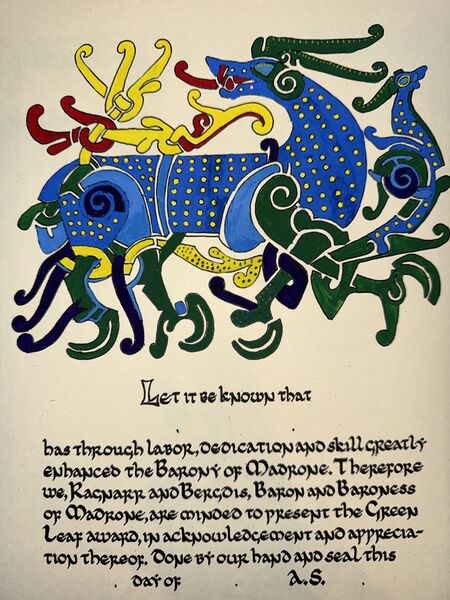 Let it be known that
has through labor, dedication and skill greatly
enhanced the Barony of Madrone. Therefore
we, Ragnarr and Bergdis, Baron and Baroness
of Madrone, are minded to present the Green
Leaf award, in acknowledgement and apprecia-
tion thereof. Done by our hand and seal this
day of A.S.